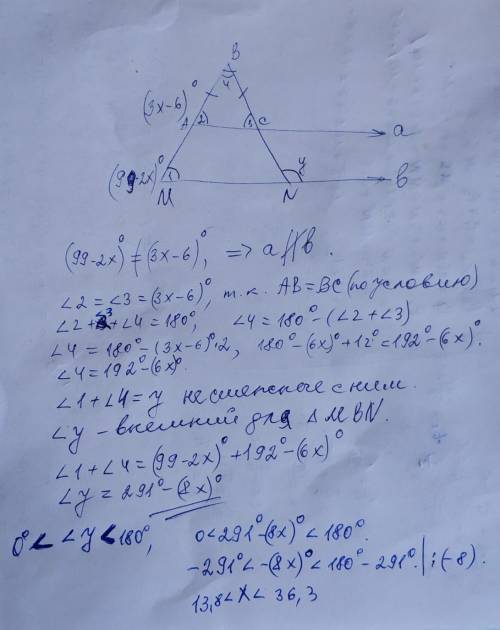 B
4
(3x-6)°
A 2 3 C a
(99-2x)° 1 y
M N b
(99-2x)° ≠ (3x-6)°, => a ∦ b.
∠2 = ∠3 = (3x-6)°, т.к. AB = BC (по условию)
∠2 + ∠3 + ∠4 = 180°, ∠4 = 180° - (∠2 + ∠3)
∠4 = 180° - (3x-6)°·2, 180° - (6x)° + 12° = 192° - (6x)°.
∠4 = 192° - (6x)°.
∠1 + ∠4 = y несмежное с ним.
∠y - внешний для △ MBN.
∠1 + ∠4 = (99-2x)° + 192° - (6x)°
∠y = 291° - (8x)°
0° < ∠y < 180°, 0 < 291° - (8x)° < 180°.
-291° < -(8x)° < 180° - 291°. | :(-8).
13,8 < x < 36,3